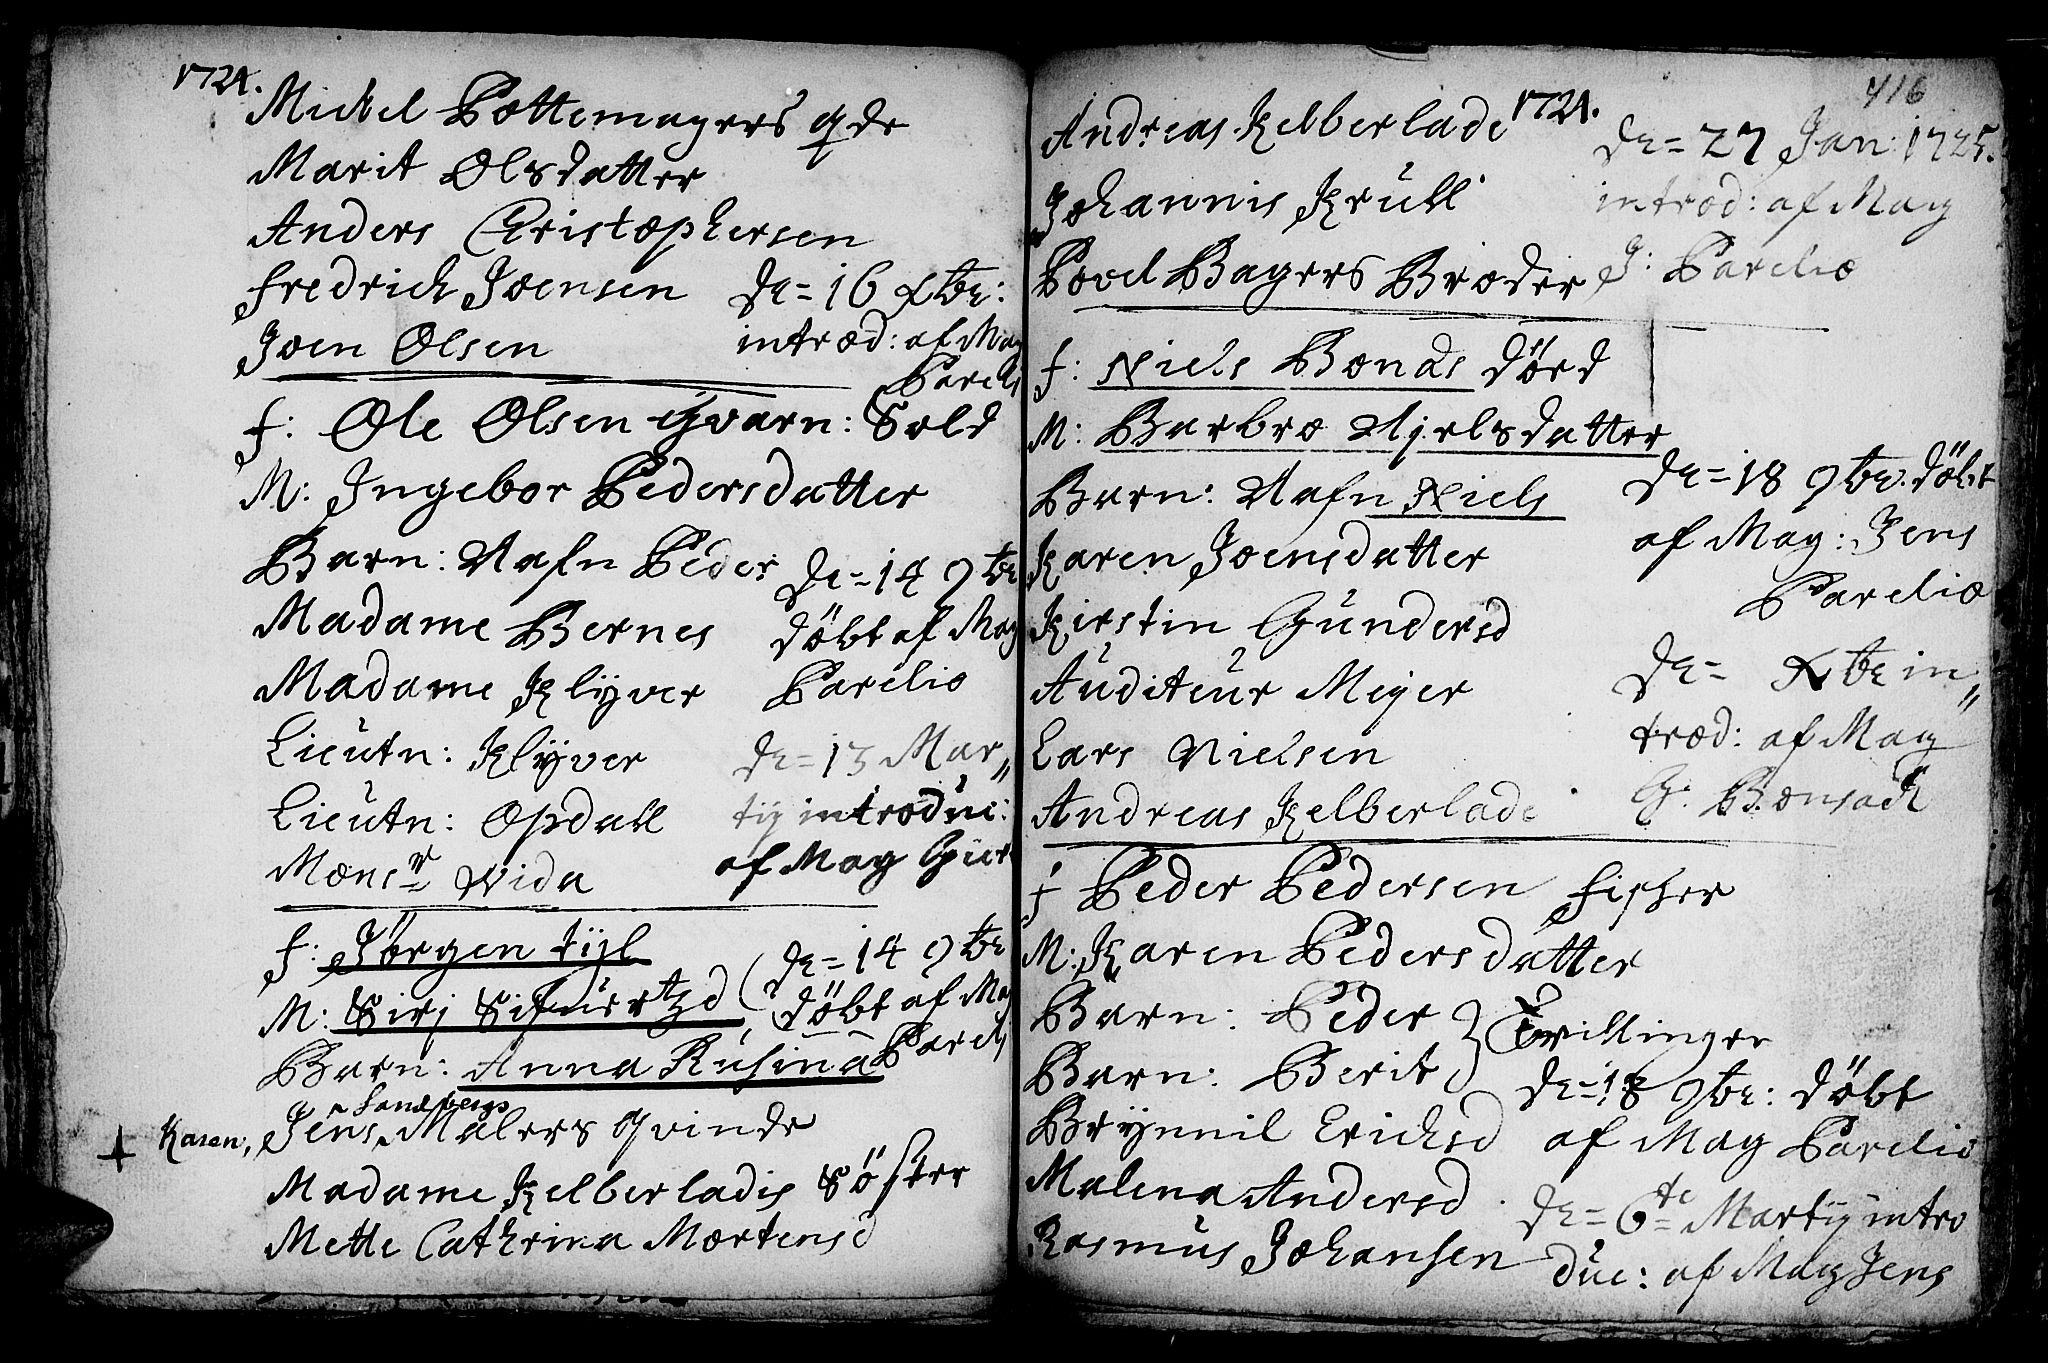 1724.
Michel Pottemagers qde
Marit Olsdatter
Anders Christophersen
Fredrich Joensen
Joen Olsen
de = 16 Xbr:
introd: af Mag
Parelj
f: Ole Olsen gvarn: Sold
M: Ingebor Pedersdatter
Barn: Nafn Peder
Madame Bernes
Madame Klÿver
Lieutn: Klÿver
Lieutn: Opdall
Monsr Wida
de = 14 9br
döbt af Mag
Parelio
de = 13 Mar„
tij introduc:
af Mag
f: Jörgen tijl
M: Sirj Sifuertzd
Barn: Anna Rusina
de = 14 9br
döbt af Mag
Parelj
Sandbergs
Karen, Jens Malers qvinde
Madame Kelberladis Söster
Mette Cathrina Mortensd
416
1724.
Andreas Kelberlade
Johannis Krull
Povel Bagers Broder
de = 27 Jan: 1725.
introd: af Mag
J: Parelio
f: Niels Bonds död
M: Barbro Njelsdatter
Barn: Nafn Niels
Karen Joensdatter
Kirstin Gundersd
Auditeur Mejer
Lars Nielsen
Andreas Kelberlade
de = 18 9br. döbt
af Mag: Jens
Parelio
de = Xbr in„
trod: af Mag
G. Bonsach
f Peder Pedersen fischer
M: Karen Pedersdatter
Barn: Peder } Tvillinger
Barn: Berit
de = 18 9br: döbt
af Mag Parelio
Brynnil Erichsd
Malena Andersd
Rasmus Johansen
de = 6te Martij intro
duc: af Mag Jens